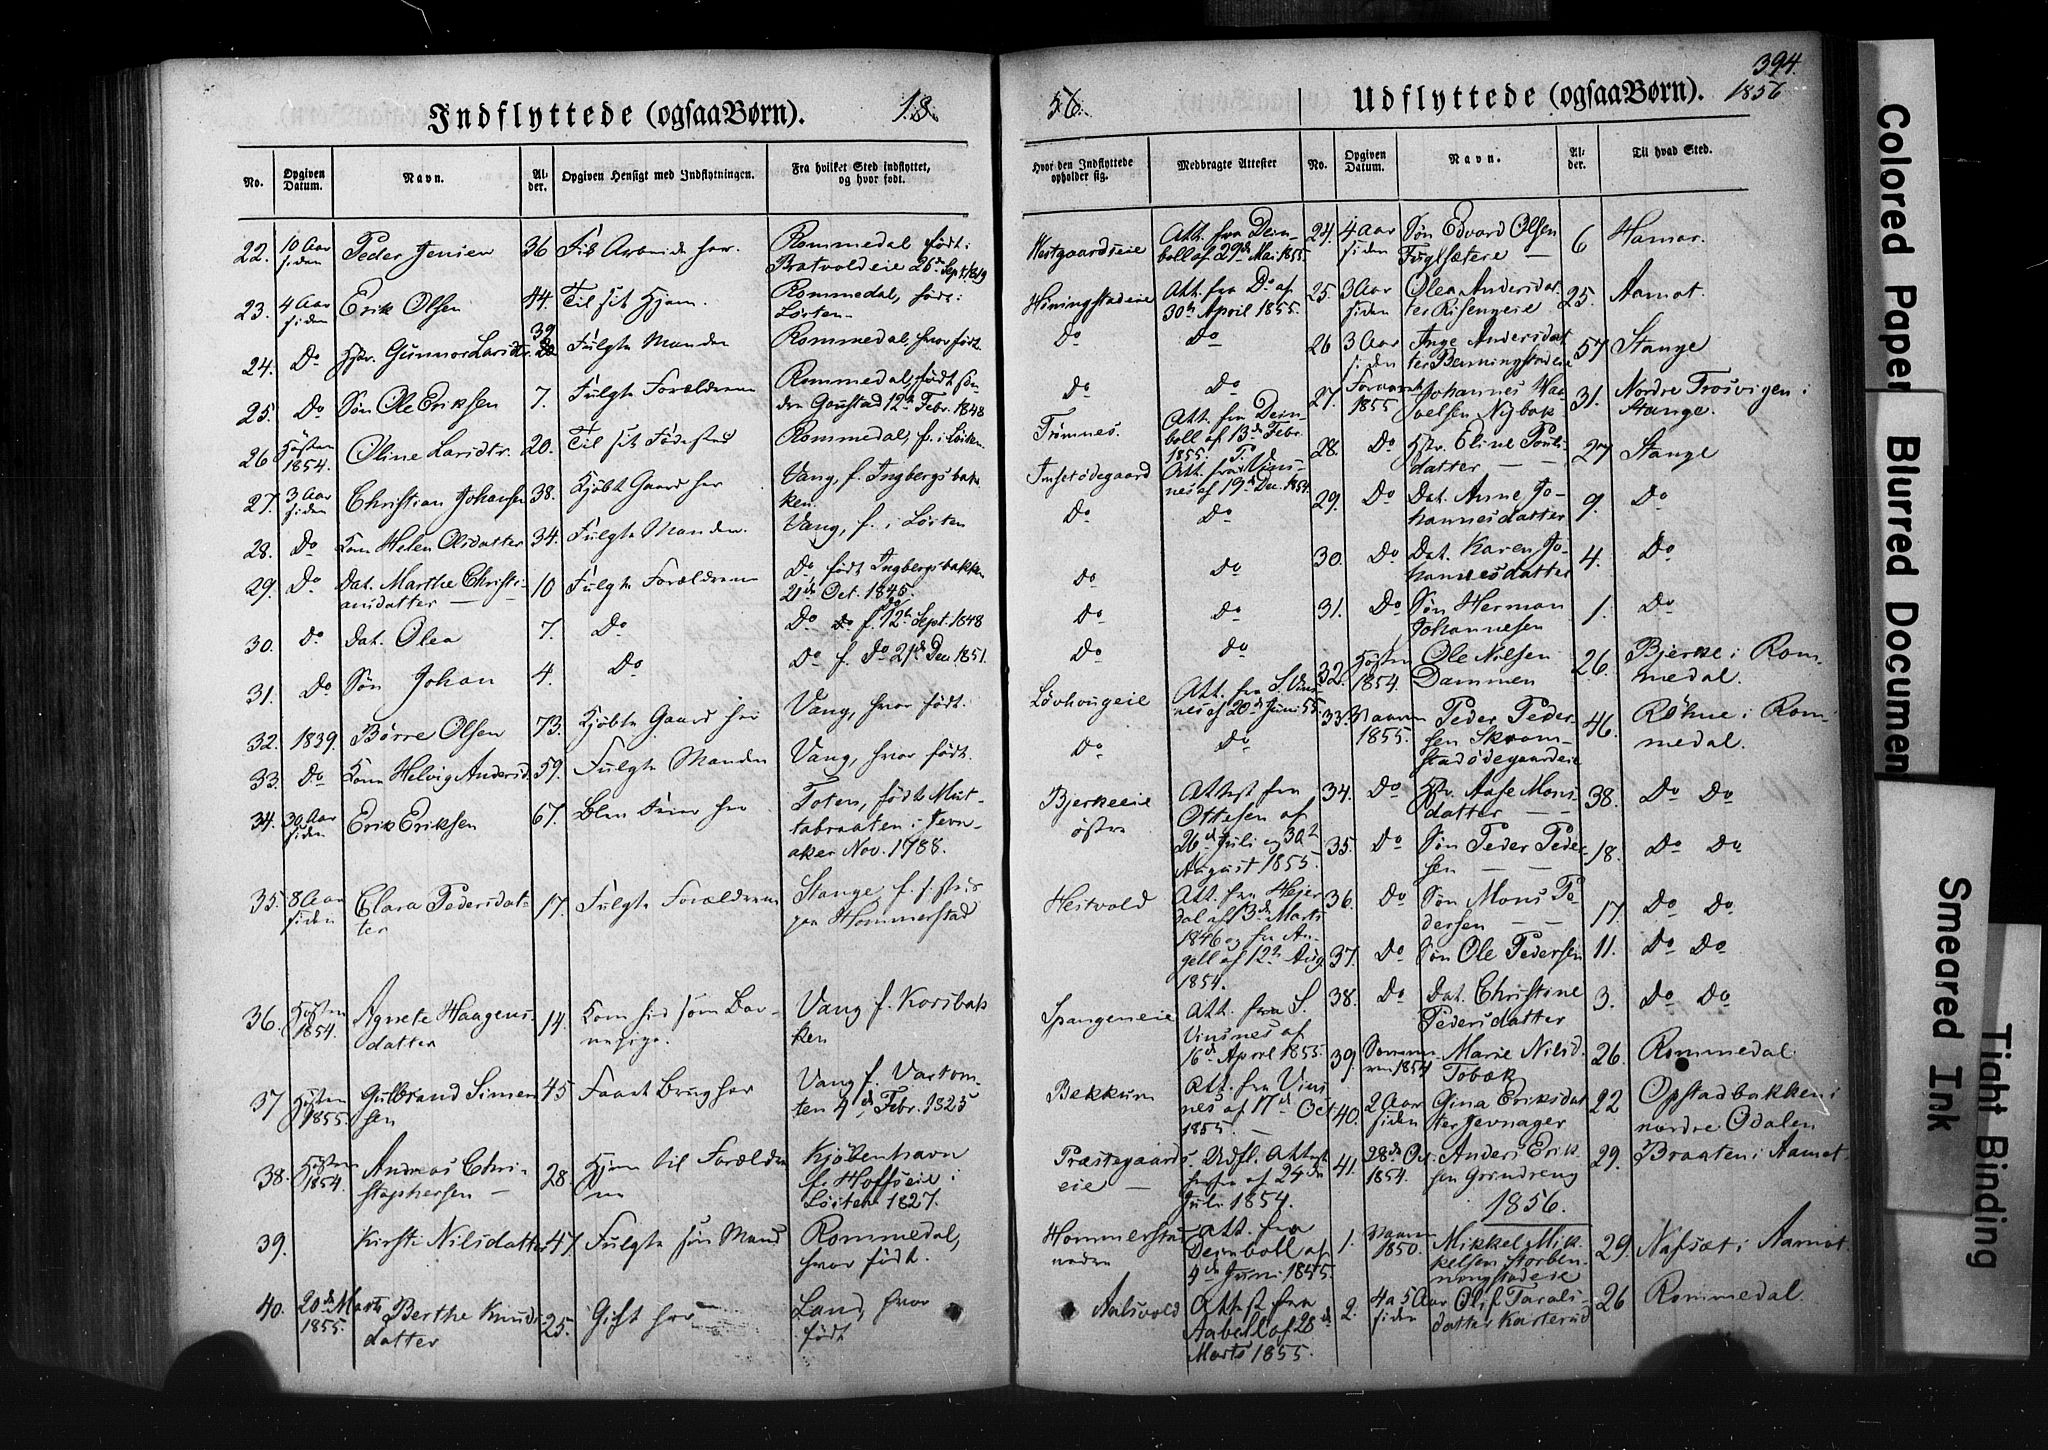 394.
Indflyttede (ogsaa Børn). 18 56. Udflyttede (ogsaa Børn). 1856
No. Opgiven Datum. Navn. Al-der. Opgiven Hensigt med Indflytningen. Fra hvilket Sted indflyttet, og hvor født.
22. 10 Aar siden Peder Jensen 36 Arbeide her. Rommedal født: Bratvoldeie 26de Sept. 1819
23. 4 Aar siden Erik Olsen 44. Til sit Hjem. Rommedal, født: Løiten
24. Do Gunnor Larsdtr. 39 Fulgte Manden Rommedal, hvor født.
25. Do Søn Ole Eriksen 7. Fulgte Forældrene Rommedal, født 12te Febr. 1848
26 Høsten 1854. Oline Larsdtr. 20. Til sit Fødested Rommedal, f. i Løiten.
27. 3 Aar siden Christian Johansen 38. Kjøbt Gaard her Vang, f. Ingbergsbakken.
28. Do Kone Helen Olsdatter 34. Fulgte Manden. Vang, f. i Løiten
29. Do Dat. Marthe Christiansdatter 10 Fulgte Forældrene Do født Ingbergsbakken 21de Oct. 1845.
30. Do Dat. Olea 7. Do Do f. Do 12te Sept. 1848
31. Do Søn Johan 4. Do Do f. Do 21de Dec. 1851.
32. 1839. Børre Olsen 73. Kjøbte Gaard her Vang, hvor født.
33. Do Kone Helvig Andersd. 59. Fulgte Manden Vang, hvor født.
34. 30 Aar siden Erik Eriksen 67. Blev her Toten, født i Jevnaker Nov. 1788.
35. 8 Aar siden Clara Pedersdatter 17. Fulgte Forældrene Stange, f. paa Hommerstad
36. Høsten 1854. Agnete Haagensdatter 14 Kom hid som Barnepige. Vang f. Korsbakken
37 Høsten 1855. Gulbrand Simensen 45 Faaet Brug her Vang f. 4de Febr. 1825
38. Høsten 1854. Andreas Christophersen 28. Hjem til Forældrene Kjøbenhavn f. Hoffseie i Løiten 1827.
39. Kirsti Nilsdatter 47 Fulgte sin Mand Rommedal, hvor født.
40. 20de Marts 1855. Berthe Knudsdatter 25. Gift her Land, hvor født
Hvor den Indflyttede opholder sig. Medbragte Attester No. Opgiven Datum. Navn. Al-der. Til hvad Sted.
Westgaardseie Att. fra Deinboll af 29de Mai 1855. 24. 4 Aar siden Søn Edvard Olsen Fuglsætere 6 Hamar.
Honningstadeie Att. fra Do af 30te April 1855. 25. 3 Aar siden Olea Andersdatter Risengeie 25. Aamot.
Do Do 26 3 Aar siden Inge Andersdatter Benningstadeie 57 Stange
Do Do 27. Foraaret 1855 Johannes Nybak 31. Nordre Trosvigen i Stange.
Trømnes. Att. fra Deinboll af 13de Febr. 1855. 28. Do Eline Poulsdatter 27 Stange
Att. fra Vinsnes af 19de Dec. 1854. 29. Do Dat. Anne Johannesdatter 9. Do
Do Do 30. Do Dat. Karen Johannesdatter 4. Do
Do Do 31. Do Søn Herman Johannesen 1. Do
Do Do
Do Do 32. Høsten 1854. Ole Nilsen Dammen 26. Bjerke i Rommedal.
Løvhougeie Att. fra S. Vinsnes af 20de Juni 55. 33. 1855. Peder Pedersen Skramstadødegaardeie 46. Røhne i Rommedal.
Do Do
Bjerkeeie østre Attest fra Ottesen af 26de Juli og 30te August 1855. 34. Do Aase Monsdatter 38. Do Do
35. Do Søn Peder Pedersen 18. Do Do
Heitvold Att. fra Hejerdal af 13de Marts 1846 og fra Angell af 12te Aug. 1854. 36. Do Søn Mons Pedersen 17. Do Do
37. Do Søn Ole Pedersen 11. Do Do
38. Do Dat. Christine Pedersdatter 3. Do Do
Spangeneie Att. fra S. Vinsnes af 16de April 1855. 39. Sommeren 1854 Marie Nilsd. Tobæk 26. Rommedal.
Bekkum Att. fra Vinsnes af 17de Oct. 1855 40. 2 Aar siden Gina Eriksdatter Jevnager 22 Opstadbakken i nordre Odalen
Præstegaardseie Udfl. Attest af 24de Juli 1854. 41. 28de Oct. 1854. Anders Eriksen Grindreng 29. Braaten i Aamot.
1856.
Hommerstad nedre Att. fra Deinboll af 4de Juni 1855. 1. 1850. Mikkel Mikkelsen 29. Nafsæt i Aamot.
Aalsvold Attest fra Aabell af 28de Marts 1855. 2. 4 a 5 Aar siden Taralsdatter Karterud 26 Rommedal.
Colored Paper
Blurred Document
Smeared Ink
Tight Binding